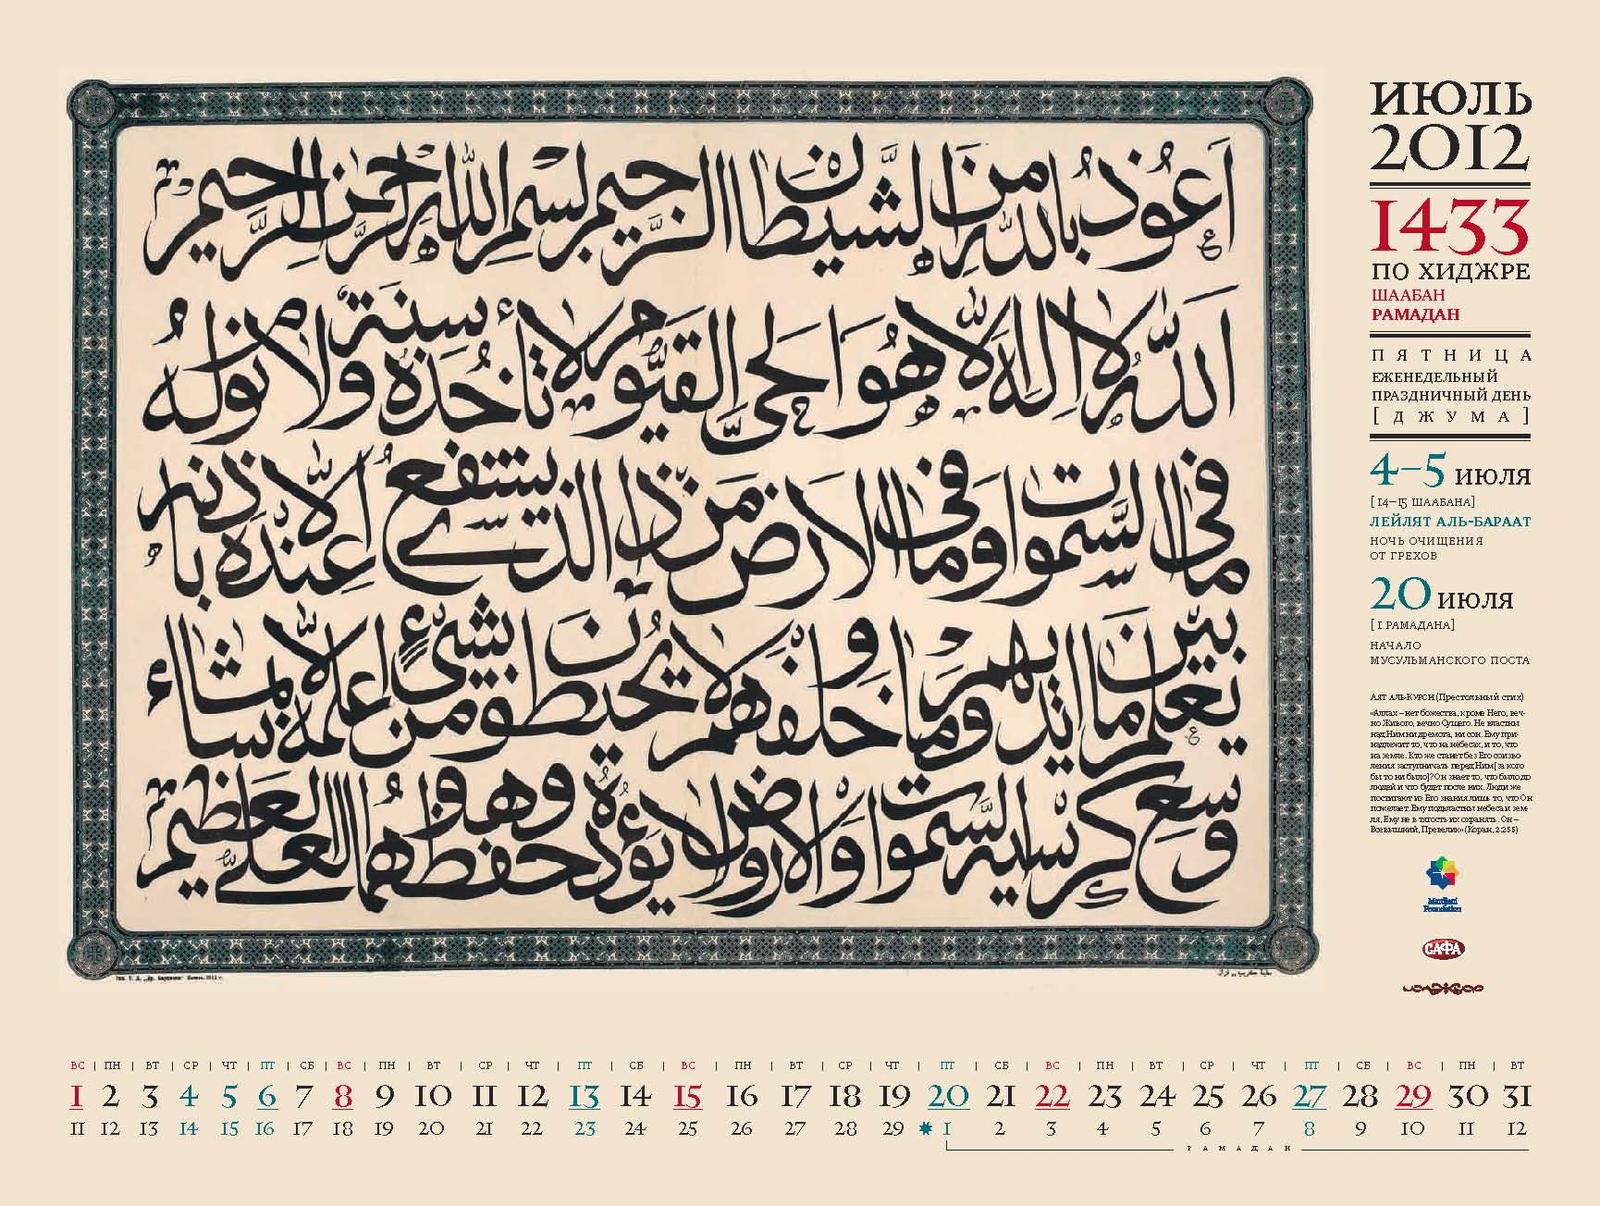 اعوذ بالله من الشيطان الرجيم بسم الله الرحمن الرحيم
الله لا اله الا هو الحى القيوم لا تأخذه سنة ولا نوم له
ما فى السموات وما فى الارض من ذا الذى يشفع عنده الا باذنه
يعلم ما بين ايديهم وما خلفهم ولا يحيطون بشىء من علمه الا بما شاء
وسع كرسيه السموات والارض ولا يؤده حفظهما وهو العلى العظيم
ИЮЛЬ
2012
1433
ПО ХИДЖРЕ
ШААБАН
РАМАДАН
ПЯТНИЦА
ЕЖЕНЕДЕЛЬНЫЙ
ПРАЗДНИЧНЫЙ ДЕНЬ
[ДЖУМА]
4–5 ИЮЛЯ
[14–15 ШААБАНА]
ЛЕЙЛЯТ АЛЬ-БАРААТ
НОЧЬ ОЧИЩЕНИЯ
ОТ ГРЕХОВ
20 ИЮЛЯ
[1 РАМАДАНА]
НАЧАЛО
МУСУЛЬМАНСКОГО ПОСТА
АЯТ АЛЬ-КУРСИ (Престольный стих)
«Аллах – нет божества, кроме Него, веч-
но Живого, вечно Сущего. Не властны
над Ним ни дремота, ни сон. Ему при-
надлежит то, что на небесах, и то, что
на земле. Кто же станет без Его соизво-
ления заступничать перед Ним [за кого
бы то ни было]? Он знает то, что было до
людей и что будет после них. Люди же
постигают из Его знания лишь то, что Он
пожелает. Ему подвластны небеса и зем-
ля, Ему не в тягость их охранять. Он –
Всевышний, Превелик» (Коран, 2:255)
Mardjani
Foundation
САФА
ВС | ПН | ВТ | СР | ЧТ | ПТ | СБ | ВС | ПН | ВТ | СР | ЧТ | ПТ | СБ | ВС | ПН | ВТ | СР | ЧТ | ПТ | СБ | ВС | ПН | ВТ | СР | ЧТ | ПТ | СБ | ВС | ПН | ВТ
1 2 3 4 5 6 7 8 9 10 11 12 13 14 15 16 17 18 19 20 21 22 23 24 25 26 27 28 29 30 31
11 12 13 14 15 16 17 18 19 20 21 22 23 24 25 26 27 28 29 1 2 3 4 5 6 7 8 9 10 11 12
РАМАДАН